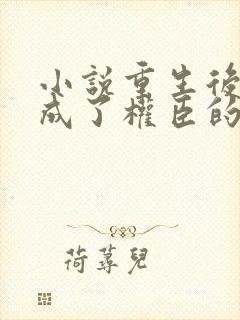 小說重生後
成了權臣的
荷蕁兒